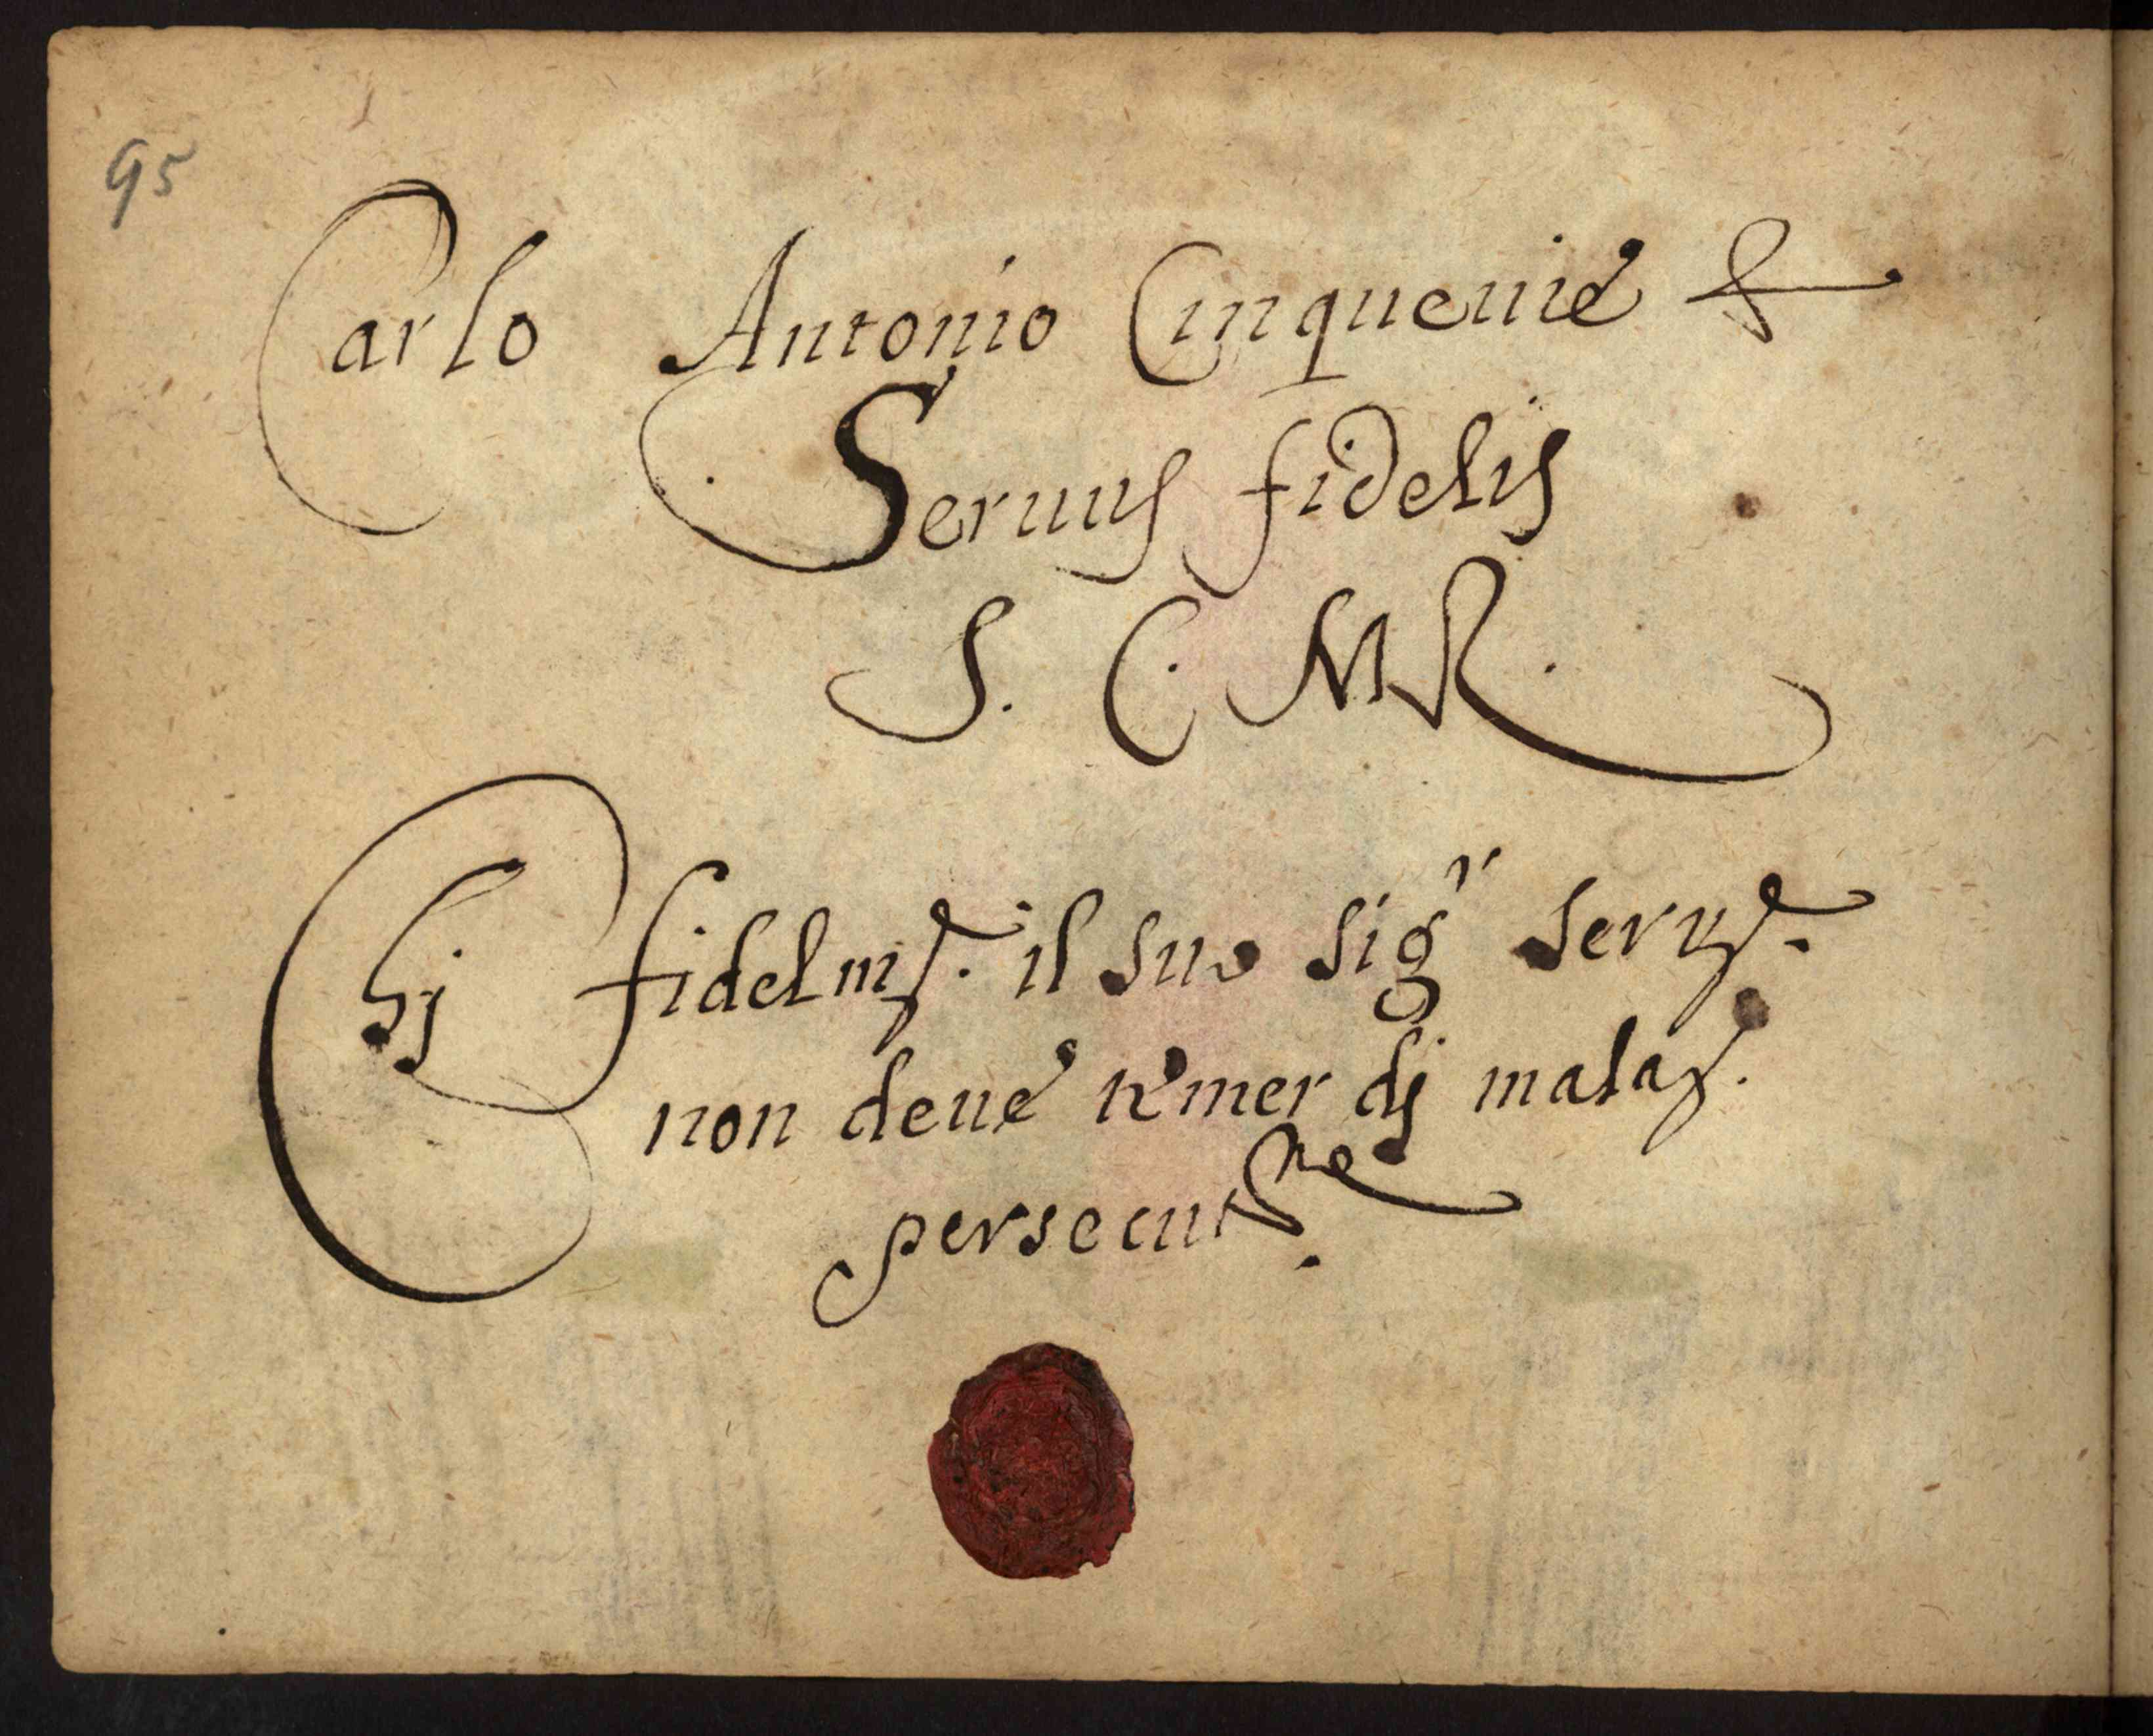 95
Carlo Antonio Cinqueuie &
Seruus fidelis
S. C. M R.
Chj fidelm. il suo sig.r seru.
non deue temer dj mala
persecut.